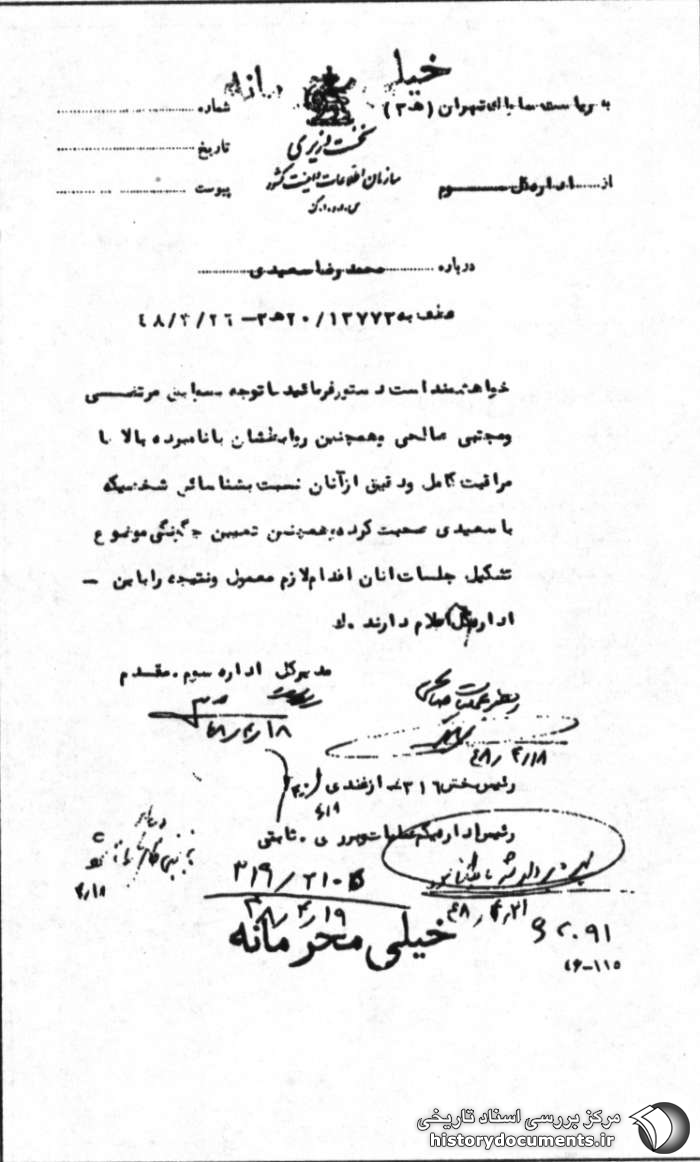 خیلی
به ریاست ساواک تهران (۳هـ)
شماره
نخست وزیری
تاریخ
سازمان اطلاعات و امنیت کشور
از اداره کل سوم
پیوست
درباره محمد رضا سعیدی
عطف به ۱۳۷۷۳/۲۰هـ۳-۴۸/۳/۲۶
خواهشمند است دستور فرمائید با توجه بسوابق مرتضی
و مجتبی صالحی و همچنین روابطشان با نامبرده بالا با
مراقبت کامل و دقیق از آنان نسبت بشناسائی شخصیکه
با سعیدی صحبت کرده و همچنین تعیین چگونگی موضوع
تشکیل جلسات انان اقدام لازم معمول و نتیجه را باین -
اداره کل اعلام دارند
مدیرکل اداره سوم . مقدم
۴۸/۴/۱۸
۴۸/۴/۱۸
رئیس بخش ۳۱۶ ازغندی
رئیس اداره یکم عملیات و بررسی . ثابتی
۴/۱۸
۳۱۶/۲۱۰۵
۴۸/۴/۱۹
۴۸/۴/۲۱
خیلی محرمانه
۴۶-۱۱۵
مرکز بررسی اسناد تاریخی
historydocuments.ir